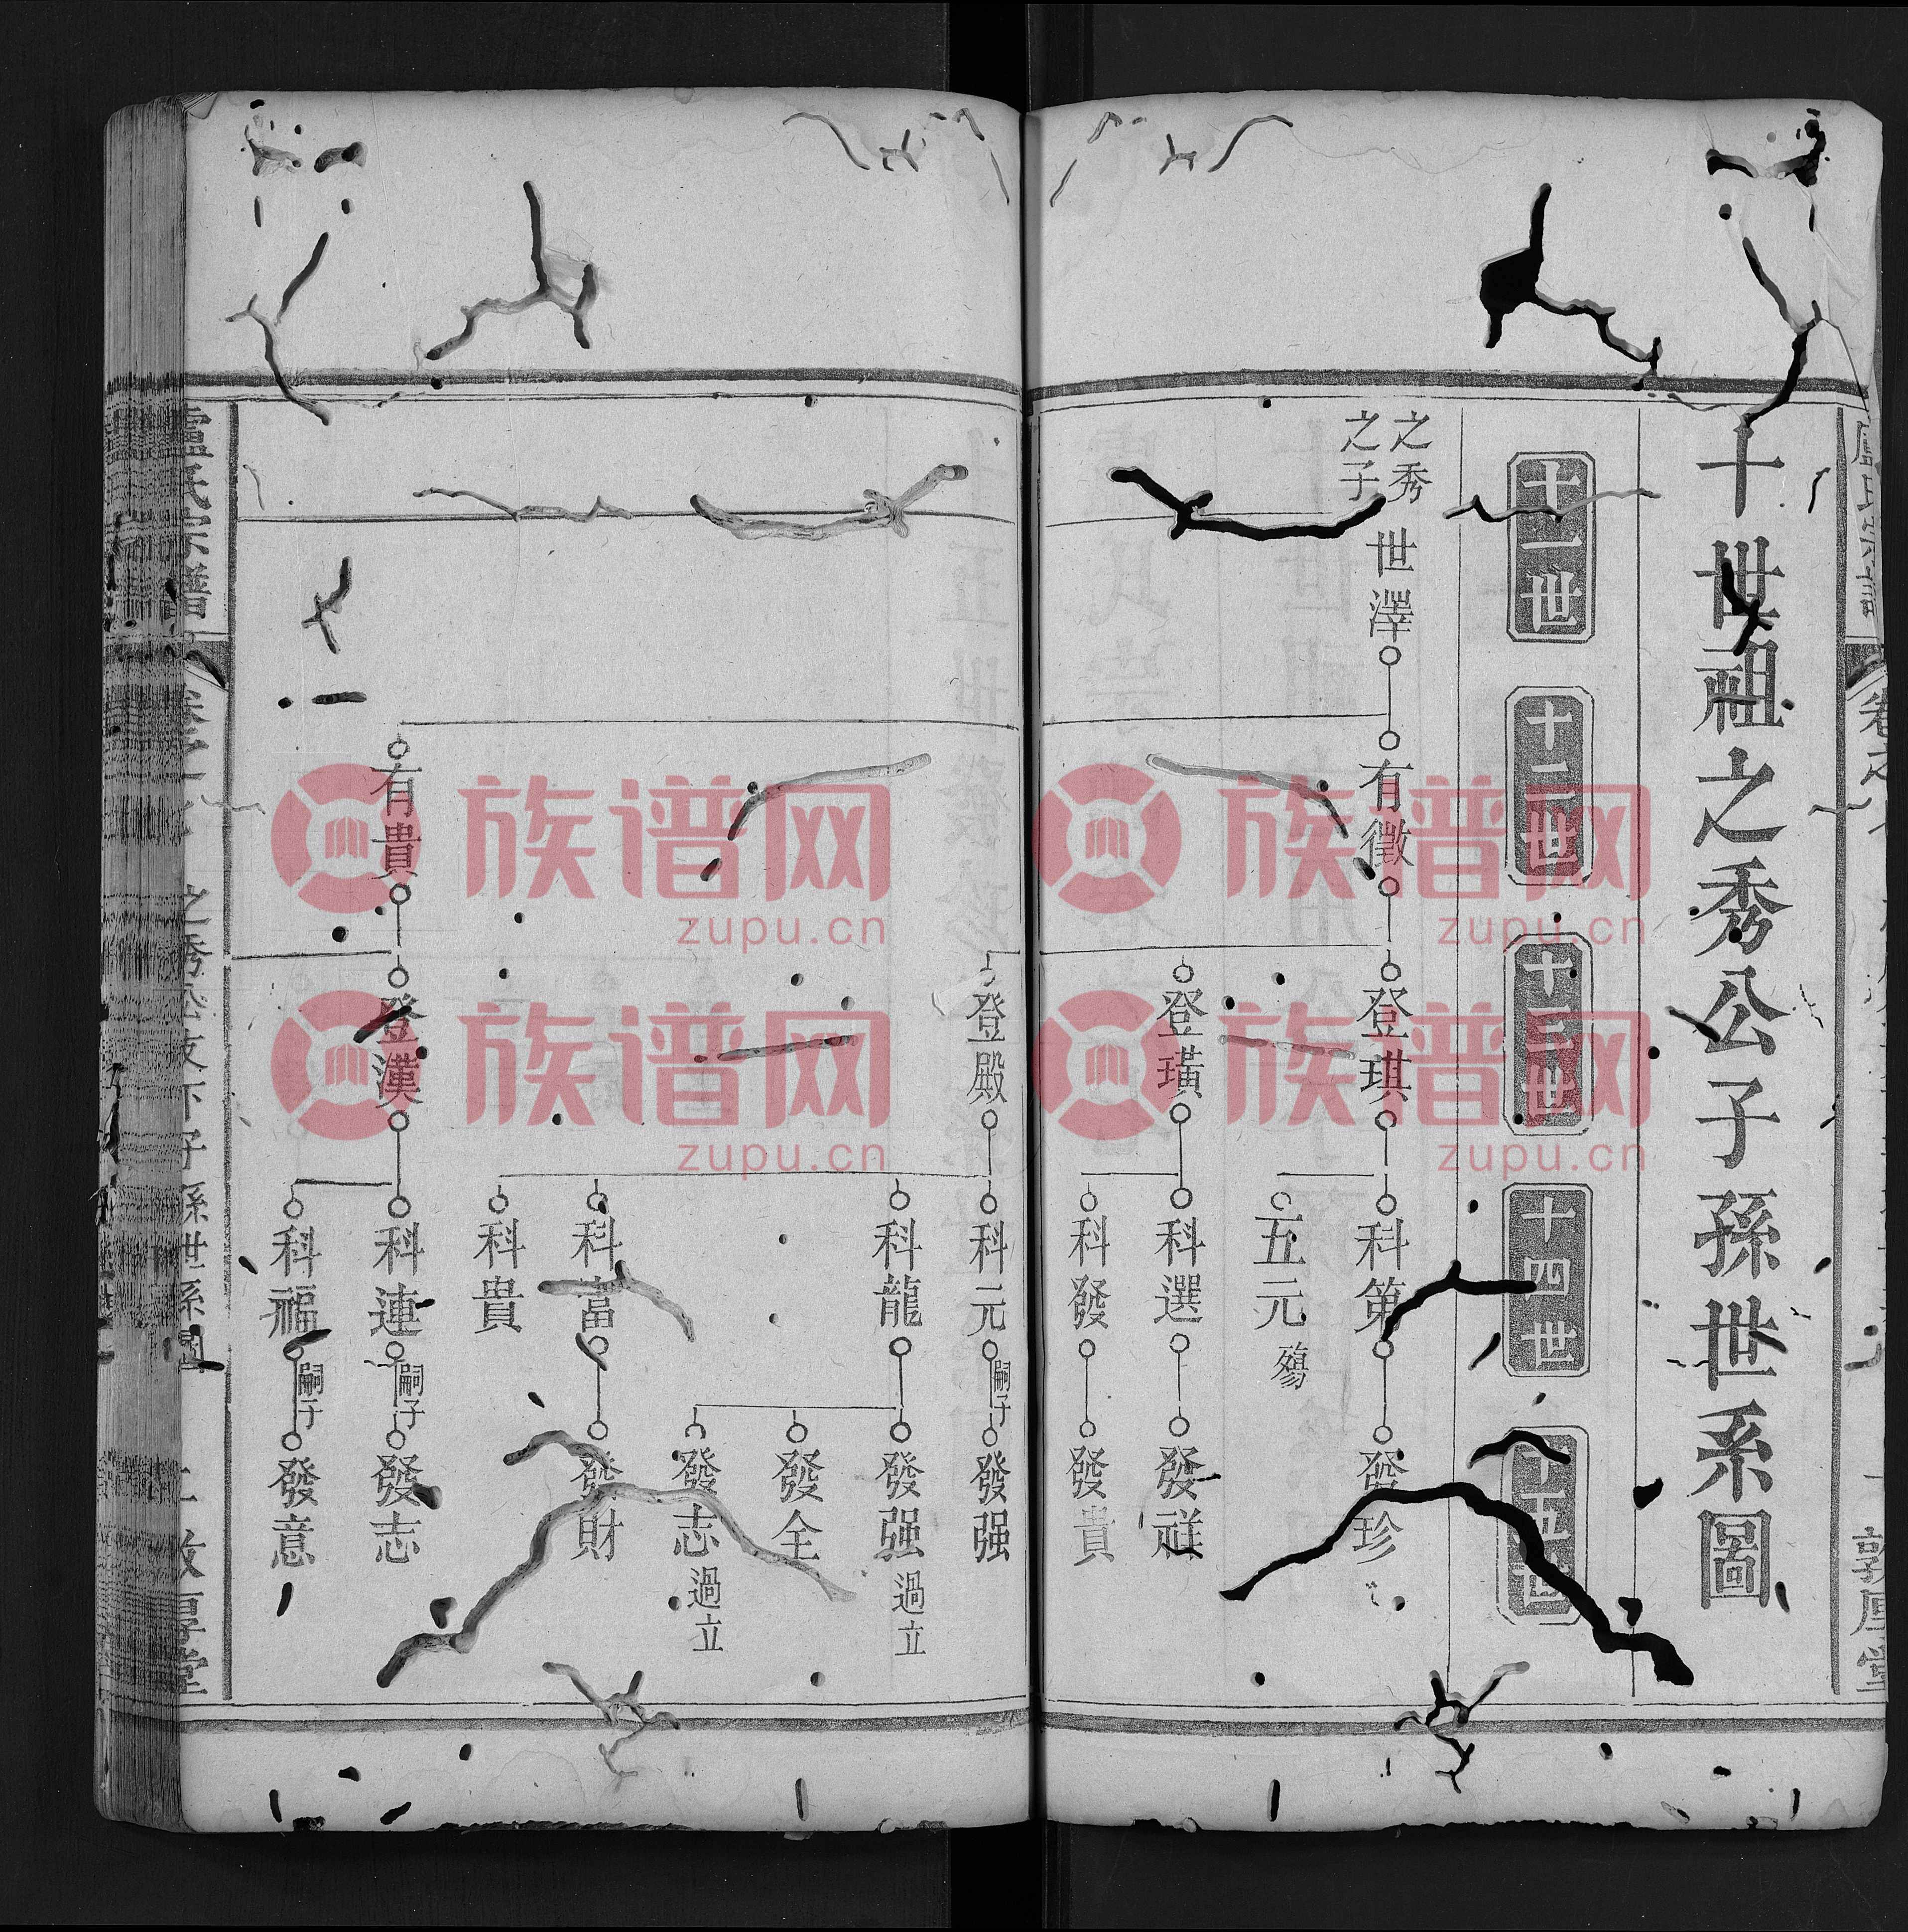 十世祖之秀公子孫世系圖
十一世
十二世
十三世
十四世
十五世
之秀
之子
世澤
有徵
登琪
科第
發珍
五元
殤
登璜
科選
發祥
科發
發貴
登殿
科元
嗣子
發强
科龍
發强
過立
發全
發志
過立
科富
發財
科貴
有貴
登漢
科連
嗣子
發志
科福
嗣子
發意
盧氏宗譜
之秀公支下子孫世系圖
敦厚堂
敦厚堂
族谱网
zupu.cn
族谱网
zupu.cn
族谱网
zupu.cn
族谱网
zupu.cn